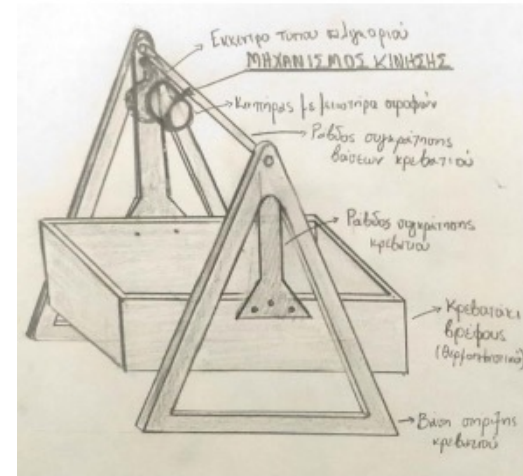 Έκκεντρο τύπου φεγγαριού
ΜΗΧΑΝΙΣΜΟΣ ΚΙΝΗΣΗΣ
Κινητήρας με μειωτήρα στροφών
Ράβδος συγκράτησης
βάσεων κρεβατιού
Ράβδος συγκράτησης
κρεβατιού
Κρεβατάκι
βρέφους
Βάση στήριξης
κρεβατιού